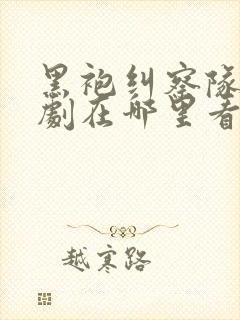 黑袍纠察队
剧在哪里看
越寒路